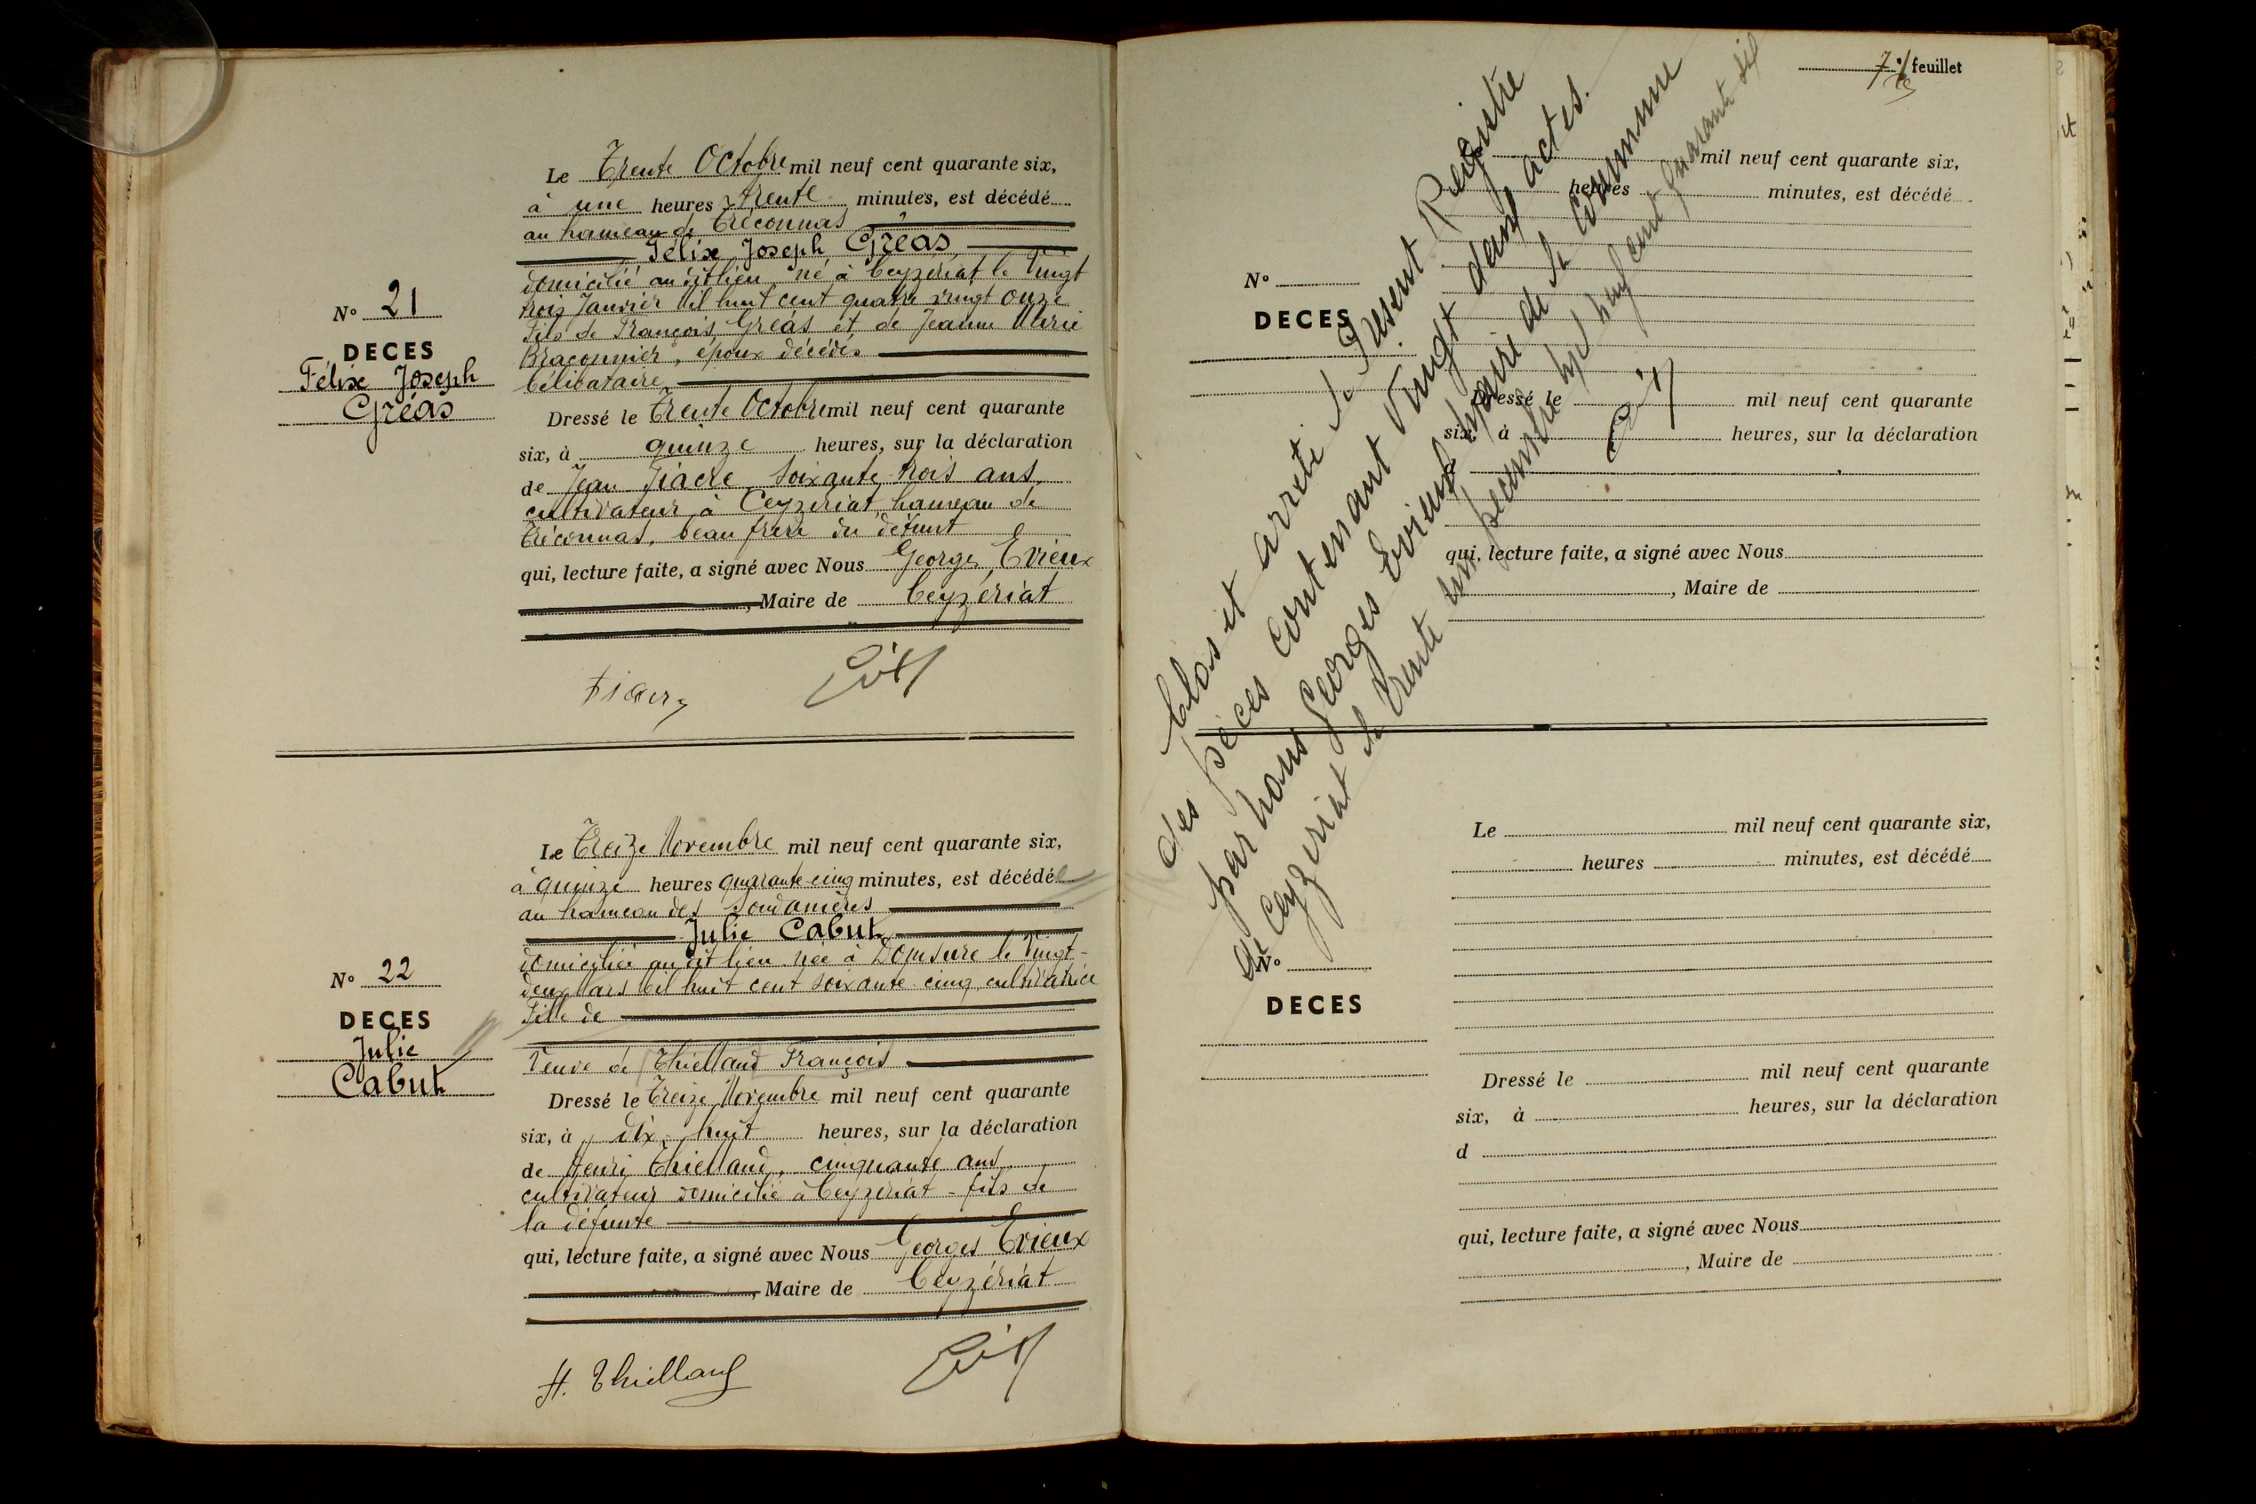 N° 21
DECES
Félix Joseph
Gréas
Le Trente Octobre mil neuf cent quarante six,
à une heures trente minutes, est décédé
au hameau de Tréconnas
Félix Joseph Gréas
domicilié au dit lieu né à Ceyzériat le Vingt
trois Janvier Mil huit cent quatre vingt onze
Fils de François Gréas et de Jeanne Marie
Braconnier, époux décédés
Célibataire
Dressé le Trente Octobre mil neuf cent quarante
six, à quinze heures, sur la déclaration
de Jean Fiacre soixante trois ans,
cultivateur à Ceyzériat hameau de
Tréconnas, beau frère du défunt
qui, lecture faite, a signé avec Nous Georges Evieux
, Maire de Ceyzériat
N° 22
DECES
Julie
Cabut
Le Treize Novembre mil neuf cent quarante six,
à quinze heures quarante cinq minutes, est décédée
au hameau des Soudanières
Julie Cabut
domiciliée au dit lieu née à Domsure le Vingt-
deux Mars Mil huit cent soixante cinq, cultivatrice
Fille de
Veuve de Thielland François
Dressé le Treize Novembre mil neuf cent quarante
six, à dix-huit heures, sur la déclaration
de Henri Thielland, cinquante ans
cultivateur domicilié à Ceyzériat - fils de
la défunte
qui, lecture faite, a signé avec Nous Georges Evieux
, Maire de Ceyzériat
H. Thielland
7 e feuillet
Clos et arrêté le Présent Registre
des Décès contenant Vingt deux actes.
par nous Georges Evieux Maire de la Commune
de Ceyzériat le Trente un Décembre Mil neuf cent quarante six
mil neuf cent quarante six,
heures minutes, est décédé
N°
DECES
Dressé le mil neuf cent quarante
six, à heures, sur la déclaration
qui, lecture faite, a signé avec Nous
, Maire de
Le mil neuf cent quarante six,
heures minutes, est décédé
N°
DECES
Dressé le mil neuf cent quarante
six, à heures, sur la déclaration
d
qui, lecture faite, a signé avec Nous
, Maire de